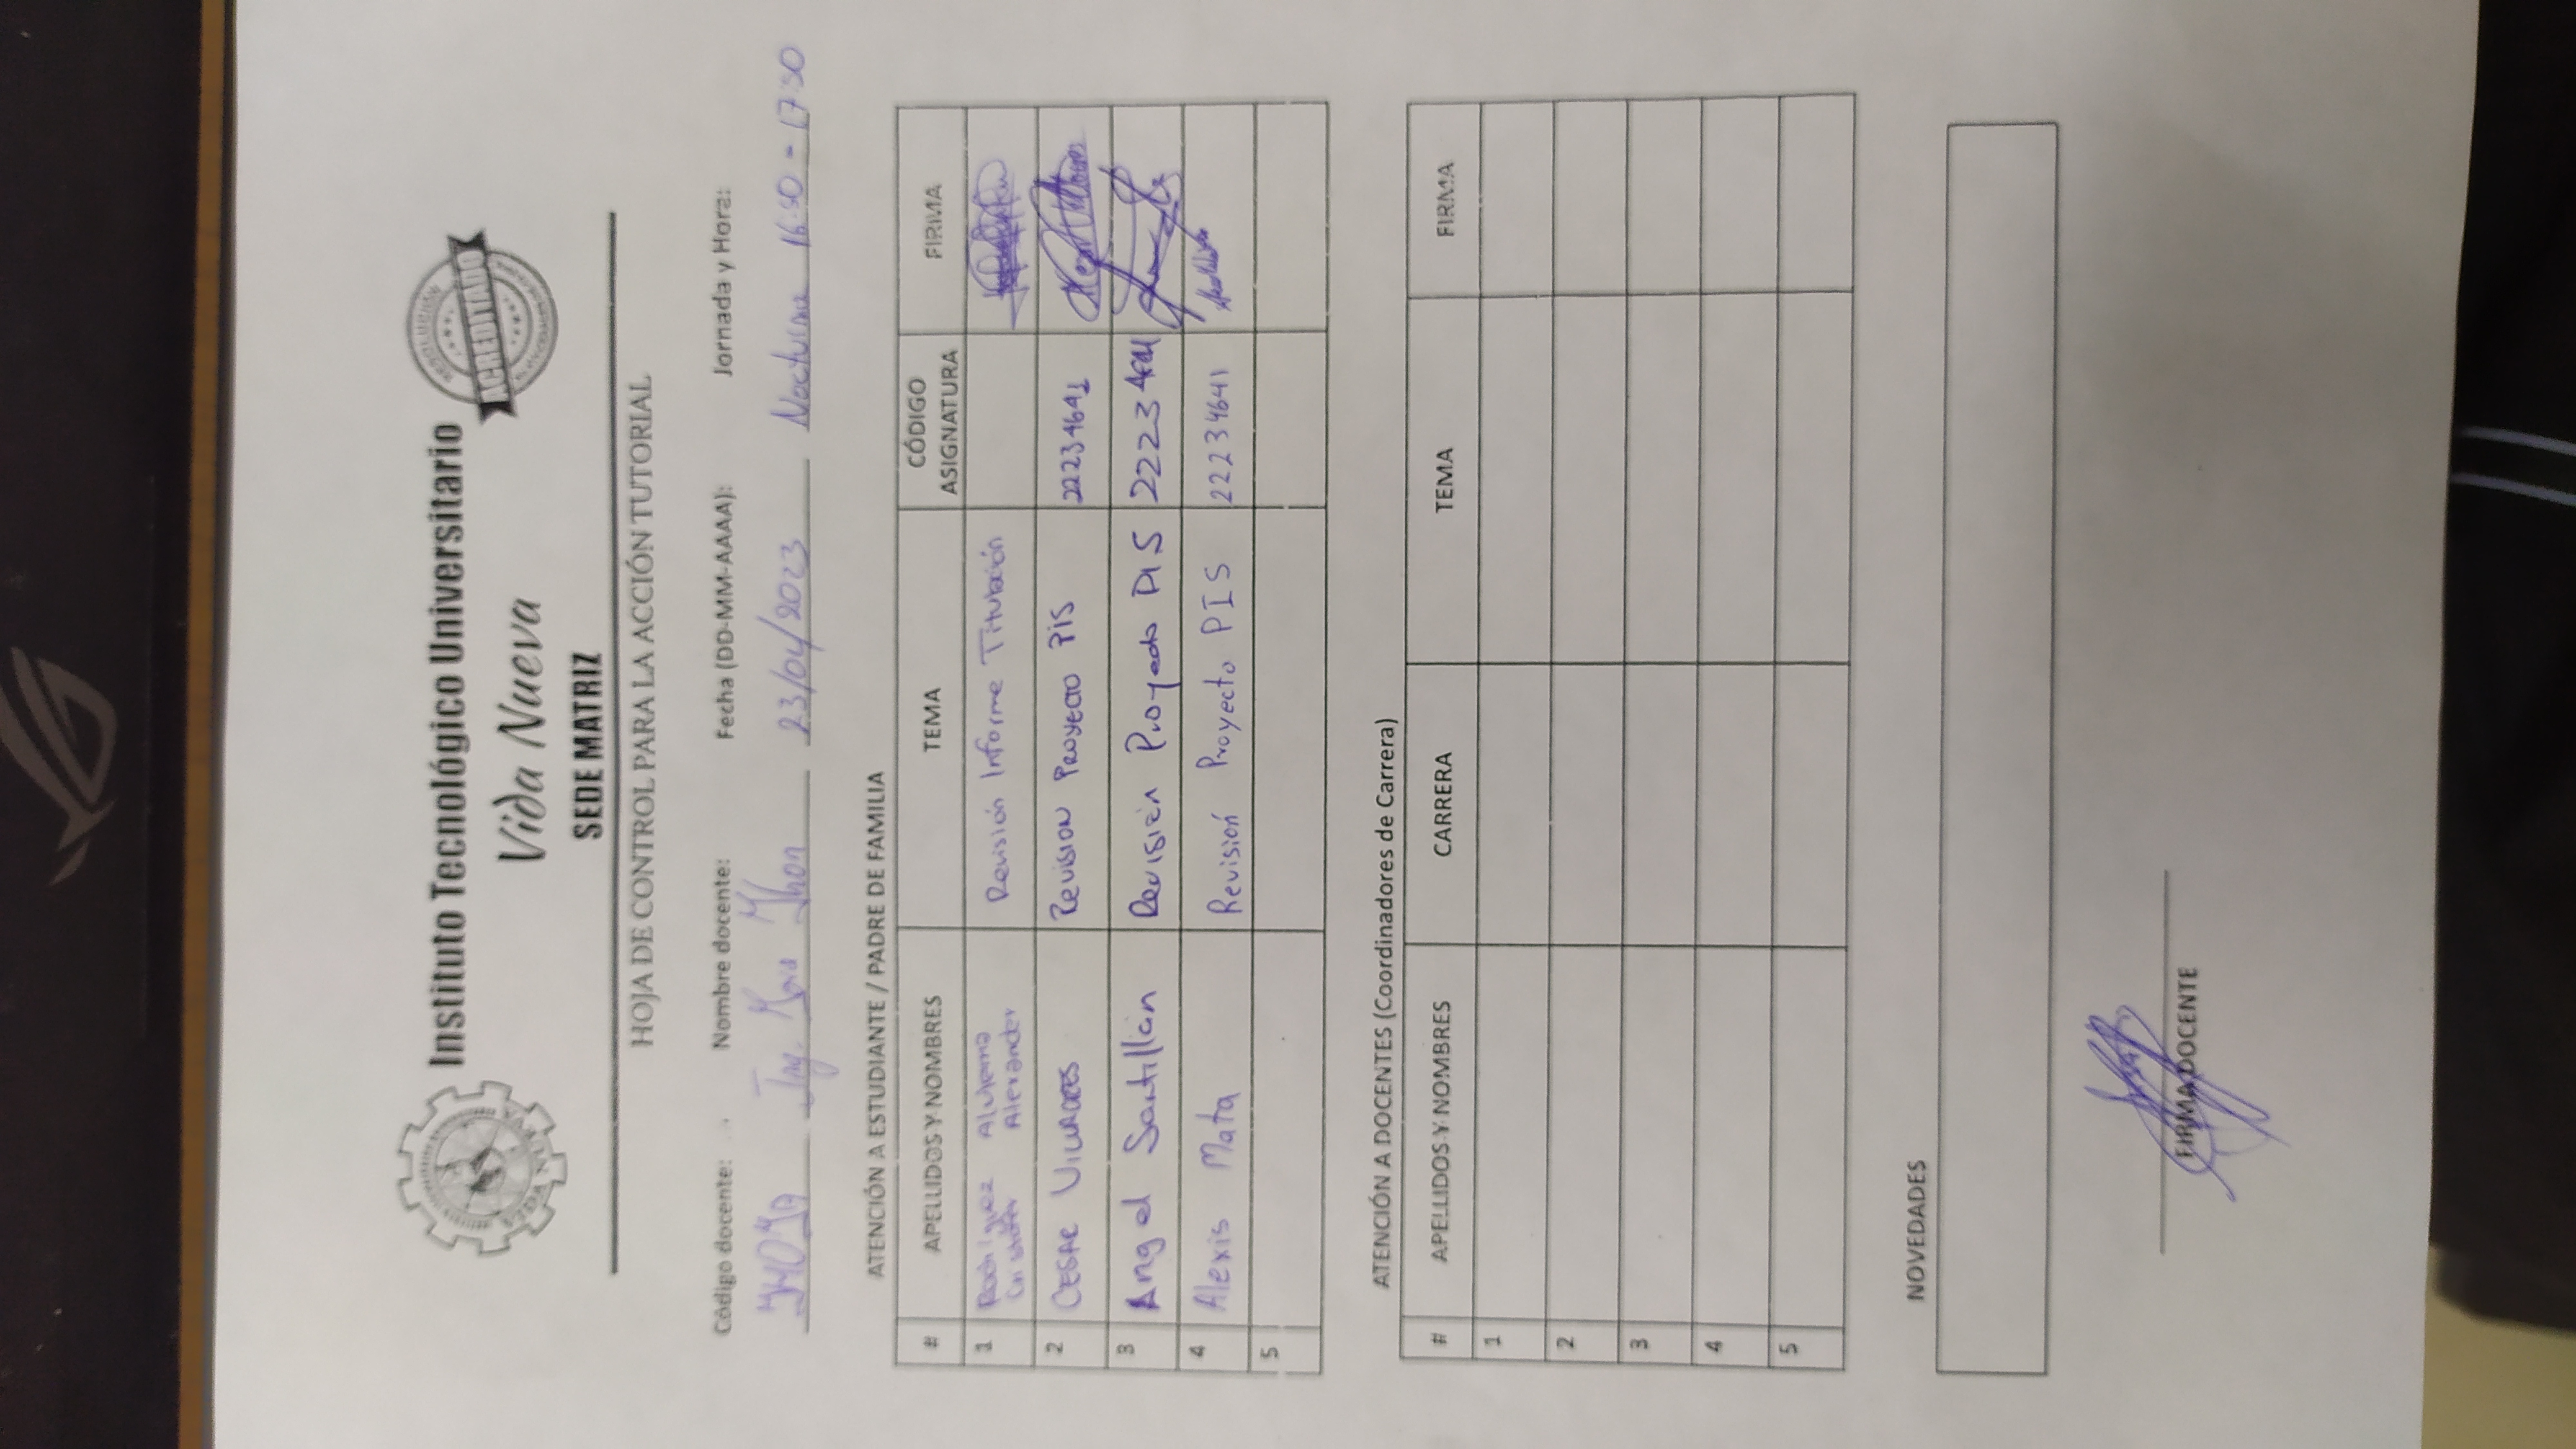 Instituto Tecnológico Universitario
Vida Nueva
SEDE MATRIZ
VIDA NUEVA
RESOLUCIÓN
ACREDITADO
HOJA DE CONTROL PARA LA ACCIÓN TUTORIAL
Código docente: Nombre docente: Fecha (DD-MM-AAAA): Jornada y Hora:
Ing. Jhon 23/04/2023 Nocturna 16:50 - 17:50
ATENCIÓN A ESTUDIANTE / PADRE DE FAMILIA
# APELLIDOS Y NOMBRES TEMA CÓDIGO ASIGNATURA FIRMA
1 Rodriguez Alexander Revisión Informe Titulación
2 CESAR VILLACRES REVISION PROYECTO PIS 22234641
3 Angel Santillán Revisión Proyecto PIS
4 Alexis Mata Revisión Proyecto PIS 22234641
5
ATENCIÓN A DOCENTES (Coordinadores de Carrera)
# APELLIDOS Y NOMBRES CARRERA TEMA FIRMA
1
2
3
4
5
NOVEDADES
FIRMA DOCENTE